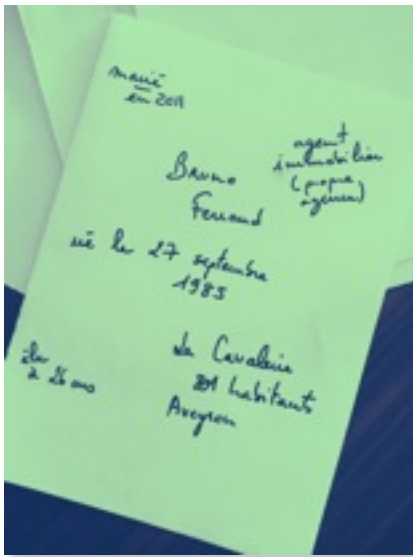 marié
en 2011
agent
immobilier
(propre
agence)
Bruno
Ferrand
né le 27 septembre
1985
La Cavalerie
801 habitants
Aveyron
élu
à 26 ans